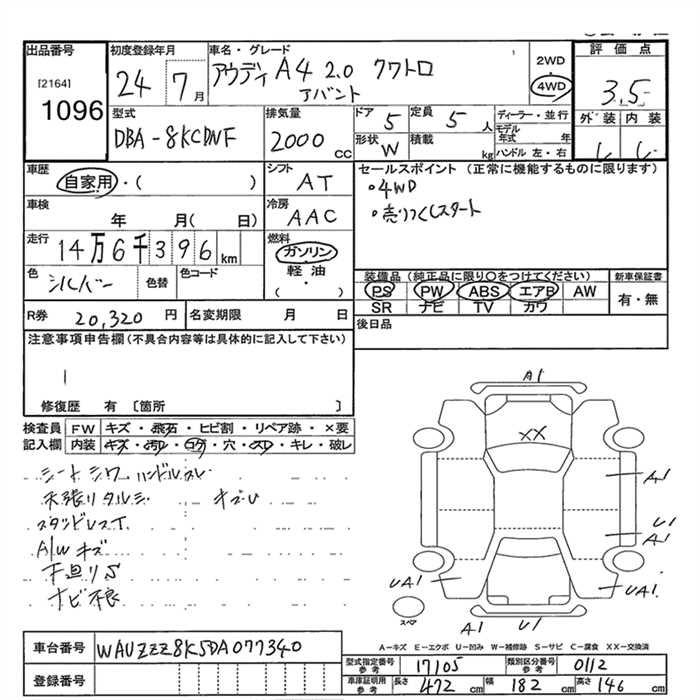 出品番号
[2164]
1096
初度登録年月
24 7月
車名・グレード
アウディ A4 2.0 クワトロ
アバント
2WD
4WD
評価点
3.5
外装 内装
型式
DBA-8KCDNF
排気量
2000 cc
ドア 5
定員 5 人
形状 W
積載 kg
ディーラー・並行
モデル年式 年
ハンドル 左・右
車歴
自家用・( )
シフト
AT
車検
年 月( 日)
冷房
AAC
走行
14万6千396 km
燃料
ガソリン
軽油・
( )
色 シルバー
色替
色コード
R券 20,320 円
名変期限 月 日
セールスポイント (正常に機能するものに限ります)
・4WD
・売りつくしスタート
装備品 (純正品に限り○をつけてください)
PS PW ABS エアB AW
SR ナビ TV カワ
新車保証書
有・無
後日品
注意事項申告欄(不具合内容等は具体的に記入して下さい)
修復歴 有 [箇所 ]
検査員記入欄
FW キズ・飛石・ヒビ割・リペア跡・×要
内装 キズ・汚れ・コゲ・穴・スレ・キレ・破レ
シートシワ ハンドルスレ
天張りタルミ キズU
スタッドレスT
A/Wキズ
下廻りS
ナビ不良
A1
XX
A1
U1
A1
UA1
UA1
スペア
A1
U1
A-キズ E-エクボ U-凹み W-補修跡 S-サビ C-腐食 XX-交換済
車台番号 WAUZZZ8K5DA077340
登録番号
型式指定番号 参考 17105
類別区分番号 参考 0112
車庫証明用 参考 長さ 472 cm 幅 182 cm 高さ 146 cm